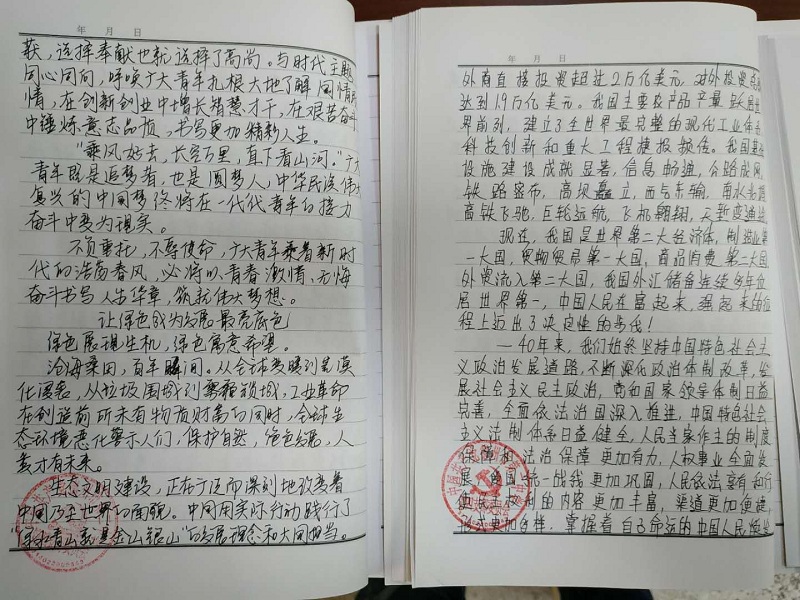 年 月 日
获，选择奉献也就选择了高尚。与时代主题
同心同向，呼唤广大青年扎根大地了解国情民
情，在创新创业中增长智慧才干，在艰苦奋斗
中锤炼意志品质，书写更加精彩人生。
"乘风好去，长空万里，直下看山河。"广大
青年既是追梦者，也是圆梦人，中华民族伟大
复兴的中国梦终将在一代代青年的接力
奋斗中变为现实。
不负重托，不辱使命，广大青年乘着新时
代的浩荡春风，必将以青春激情、无悔
奋斗书写人生华章，筑就伟大梦想。
让绿色成为发展最亮底色
绿色展现生机，绿色寓意希望。
沧海桑田，百年瞬间。从全球变暖到荒漠
化严重，从垃圾围城到雾霾锁城，工业革命
在创造前所未有物质财富的同时，全球生
态环境恶化警示人们，保护自然，绝色发展，人
类才有未来。
生态文明建设，正在广泛而深刻地改变着
中国乃至世界的面貌。中国用实际行动践行了
"绿水青山就是金山银山"的发展理念和大国担当。
年 月 日
外商直接投资超过2万亿美元，对外投资总
达到1.9万亿美元。我国主要农产品产量跃居世
界前列，建立了全世界最完整的现代工业体系
科技创新和重大工程捷报频传。我国基础
设施建设成就显著，信息畅通，公路成网，
铁路密布，高坝矗立，西气东输，南水北调
高铁飞驰，巨轮远航，飞机翱翔，天堑变通途
现在，我国是世界第二大经济体，制造业第
一大国，货物贸易第一大国，商品消费第二大国
外资流入第二大国，我国外汇储备连续多年位
居世界第一，中国人民在富起来、强起来的征
程上迈出了决定性的步伐！
—40年来，我们始终坚持中国特色社会主
义政治发展道路，不断深化政治体制改革，发
展社会主义民主政治，党和国家领导体制日益
完善，全面依法治国深入推进，中国特色社会
主义法制体系日益健全，人民当家作主的制度
保障和法治保障更加有力，人权事业全面发
展，爱国统一战线更加巩固，人民依法享有和行
使民主权利的内容更加丰富，渠道更加便捷，
形式更加多样，掌握着自己命运的中国人民焕发